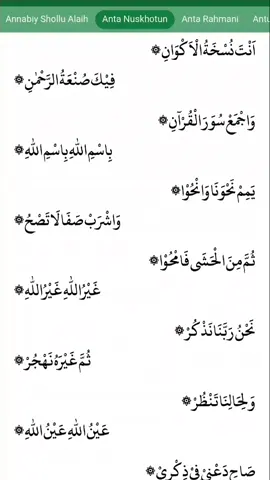 Annabiy Shollu Alaih Anta Nuskhotun Anta Rahmani Antu
اَنْتَ نُسْخَةُ الْاَكْوَانِ ۞
فِيْكَ صُنْعَةُ الرَّحْمٰنِ ۞
وَاجْمَعْ سُوَرَ الْقُرْآنِ ۞
بِاسْمِ اللهِ بِاسْمِ اللهِ ۞
يَمِمْ نَحْوَنَا وَانْحُوْا ۞
وَاشْرَبْ صَفَا لَاتَصْحُ ۞
ثُمَّ مِنَ الْحَشَى فَامْحُوْا ۞
غَيْرُ اللهِ غَيْرُ اللهِ ۞
نَحْنُ رَبَّنَا نَذْكُرْ ۞
ثُمَّ غَيْرَهُ نَهْجُرْ ۞
وَلِحَالِنَا تَنْظُرْ ۞
عَيْنُ اللهِ عَيْنُ اللهِ ۞
صَاحِ دَعْنِيْ فِيْ ذِكْرِيْ ۞